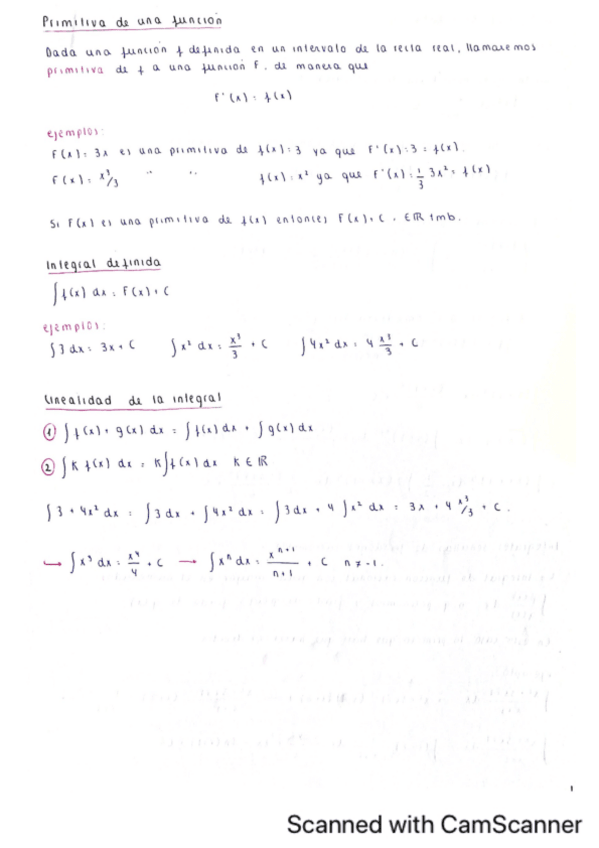 Primitiva de una función
Dada una función f definida en un intervalo de la recta real, llamaremos
primitiva de f a una función F, de manera que
F'(x) = f(x)
ejemplos:
F(x) = 3x es una primitiva de f(x) = 3 ya que F'(x) = 3 = f(x).
F(x) = x³/3 " " f(x) = x² ya que F'(x) = 1/3 3x² = f(x)
Si F(x) es una primitiva de f(x) entonces F(x) + C, ∈ ℝ tmb.
Integral definida
∫f(x) dx = F(x) + C
ejemplos:
∫3 dx = 3x + C ∫x² dx = x³/3 + C ∫4x² dx = 4 x³/3 + C
Linealidad de la integral
① ∫f(x) + g(x) dx = ∫f(x) dx + ∫g(x) dx
② ∫K f(x) dx = K∫f(x) dx K ∈ ℝ
∫3 + 4x² dx = ∫3 dx + ∫4x² dx = ∫3 dx + 4 ∫x² dx = 3x + 4 x³/3 + C.
↳ ∫x³ dx = x⁴/4 + C → ∫xⁿ dx = xⁿ⁺¹/n+1 + C n ≠ -1.
1
Scanned with CamScanner